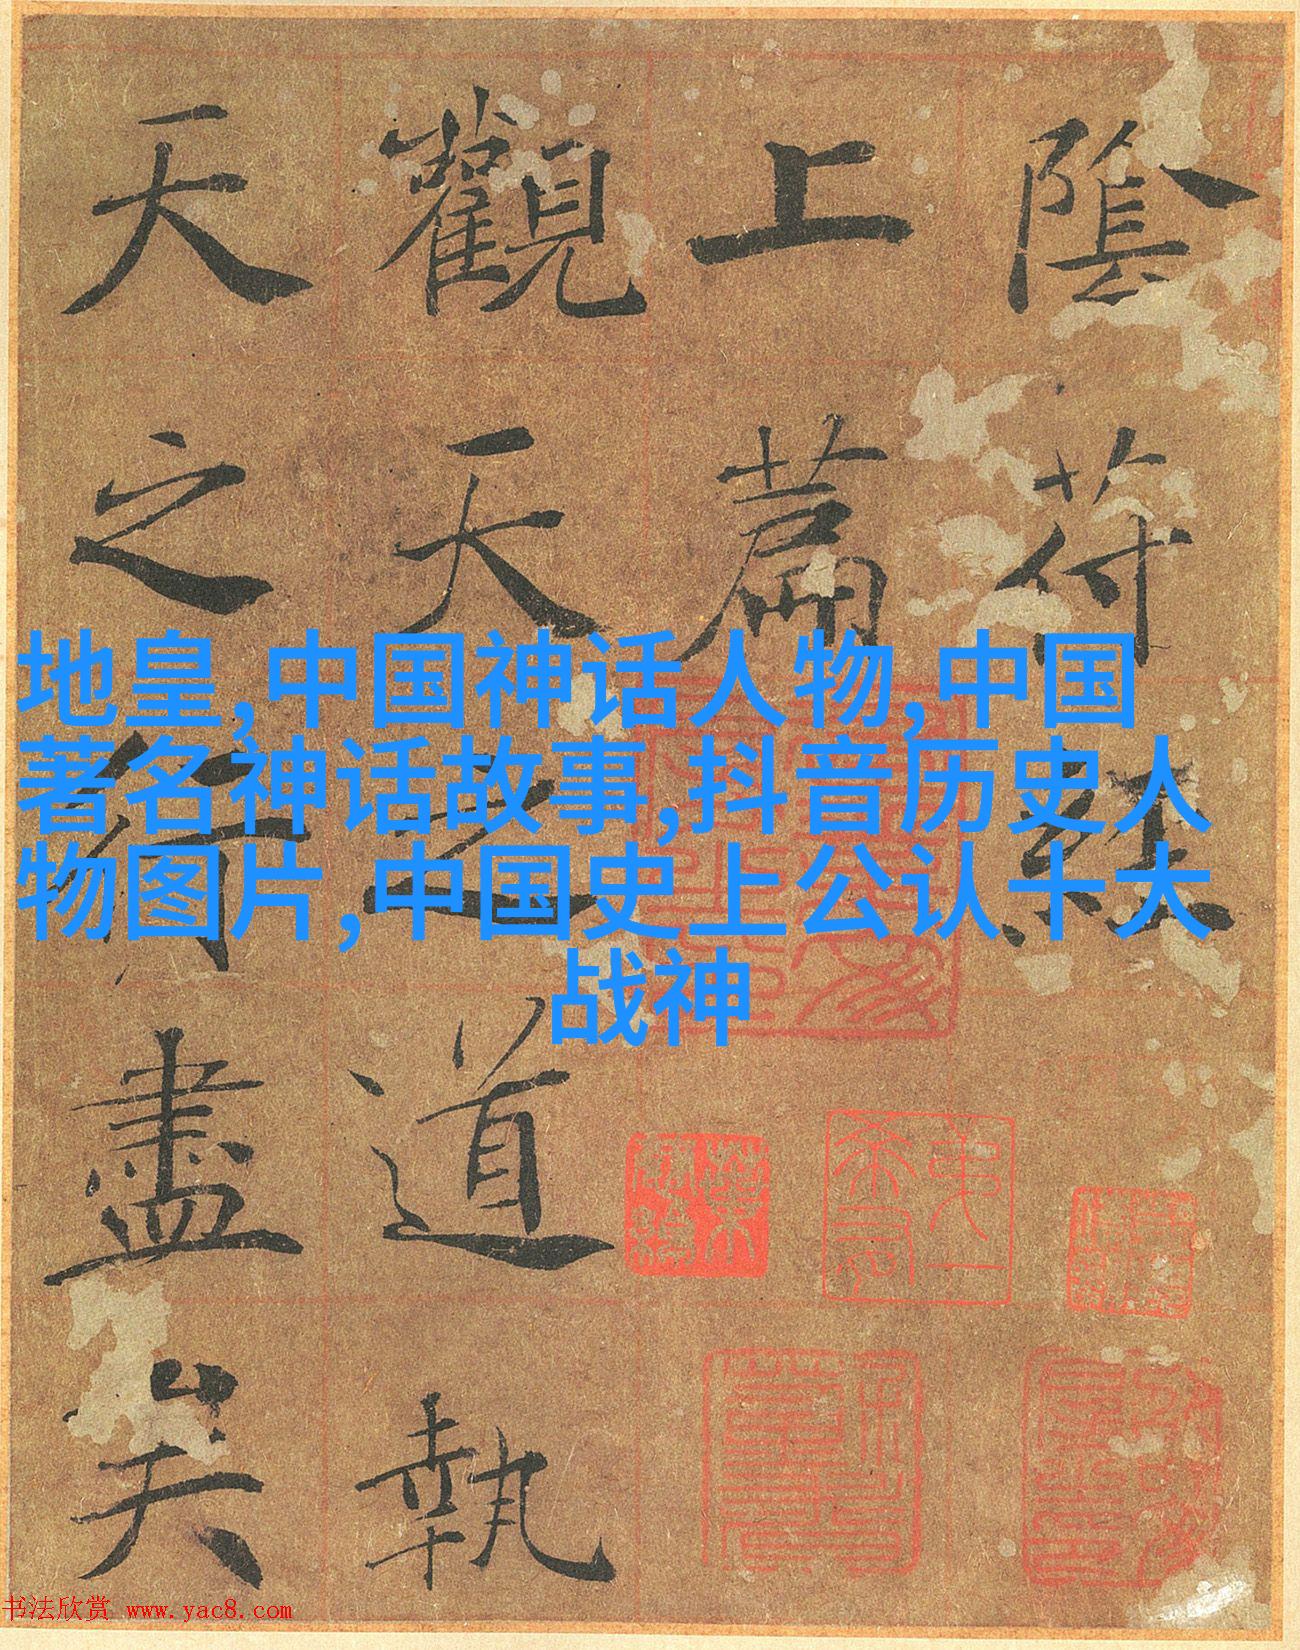 陰符經
上篇
觀天之道執
天之行盡矣
地皇,中国神话人物,中国
著名神话故事,抖音历史人
物图片,中国史上公认十大
战神
书法欣赏 www.yac8.com